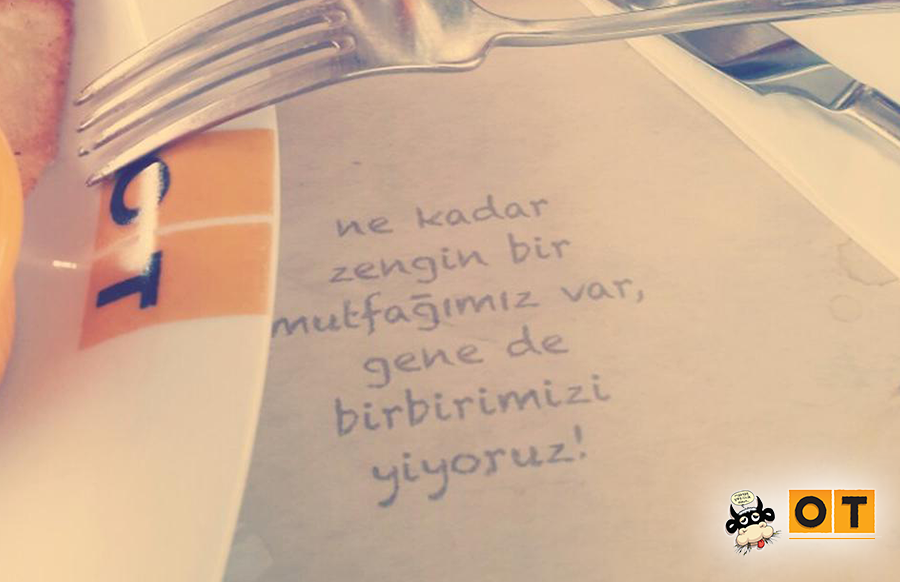 OT
ne kadar
zengin bir
mutfağımız var,
gene de
birbirimizi
yiyoruz!
OT